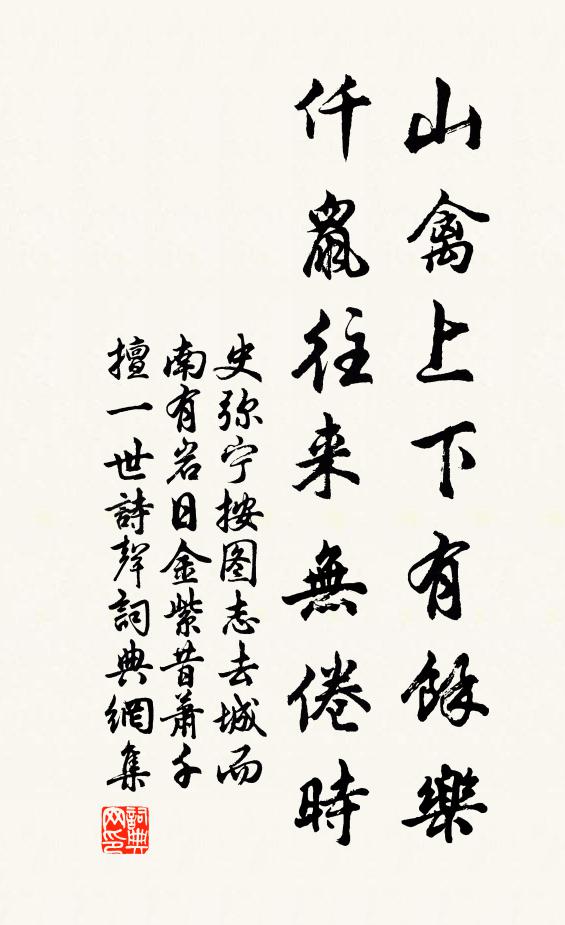 山禽上下有餘樂
仟鼠往来無倦時
史弥宁按图志去城而
南有岩日金紫昔蕭千
擅一世詩聲詞典網集
詞典
网印